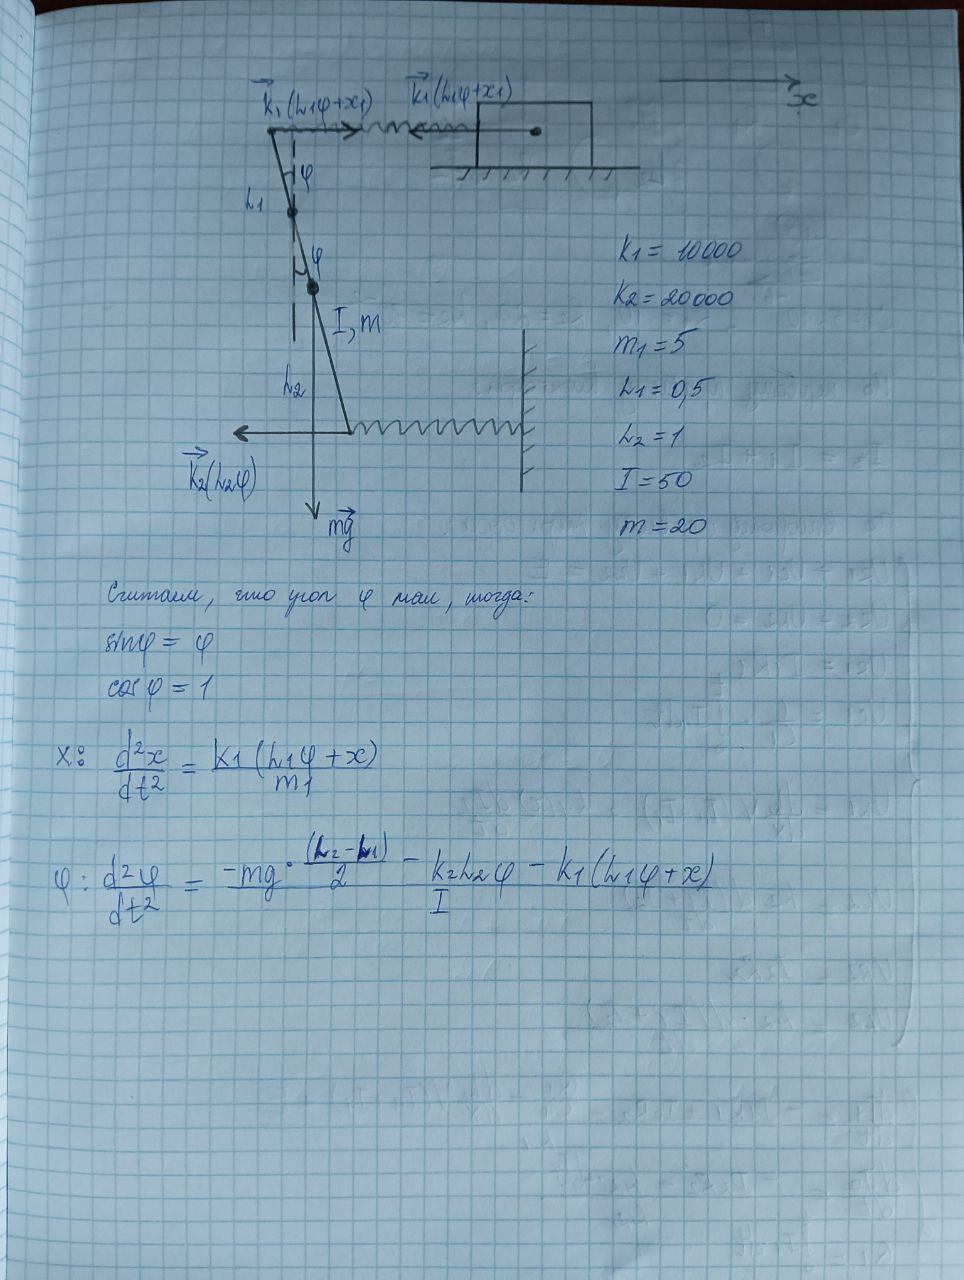 k₁(L₁φ+x₁) k₁(L₁φ+x₁)
x
φ
L₁
φ
I, m
L₂
k₂(L₂φ)
mg
k₁ = 10000
k₂ = 20000
m₁ = 5
L₁ = 0,5
L₂ = 1
I = 50
m = 20
Считаем, что угол φ мал, тогда:
sinφ = φ
cosφ = 1
x: d²x/dt² = k₁(L₁φ+x)/m₁
φ: d²φ/dt² = (-mg·(L₂-L₁)/2 - k₂L₂φ - k₁(L₁φ+x))/I